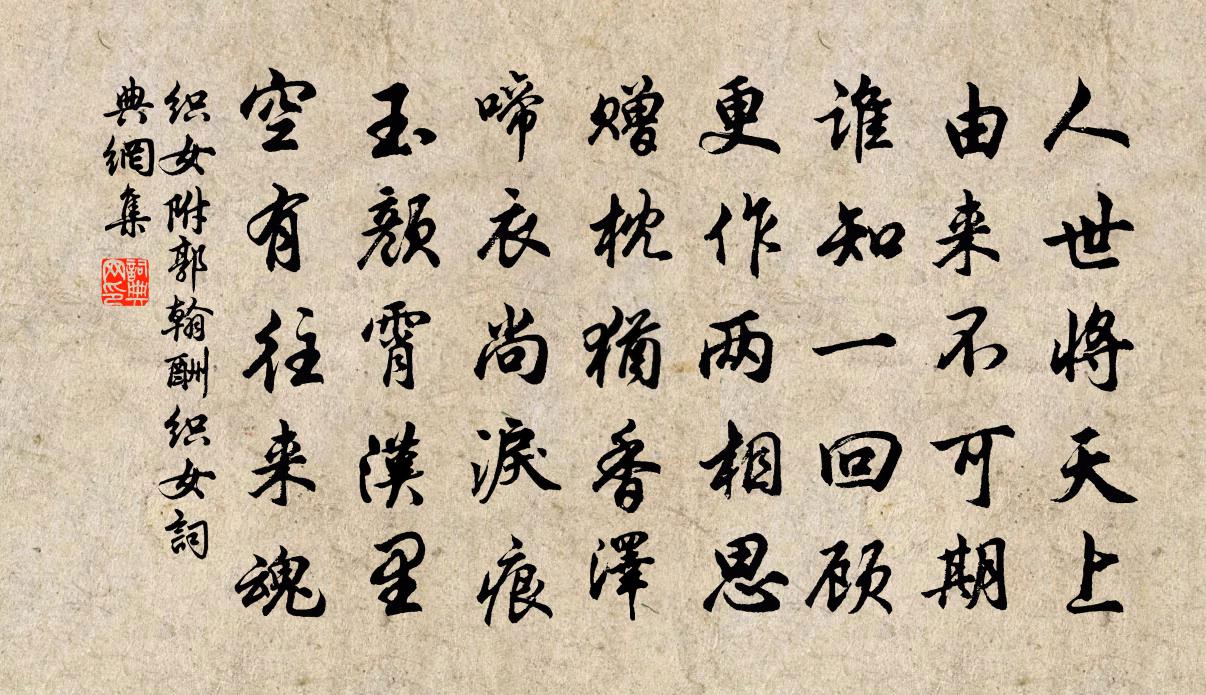 人世将天上
由来不可期
谁知一回顾
更作两相思
赠枕犹香澤
啼衣尚淚痕
玉颜霄漢里
空有往来魂
织女附郭翰酬织女詞
典網集
詞典
网印